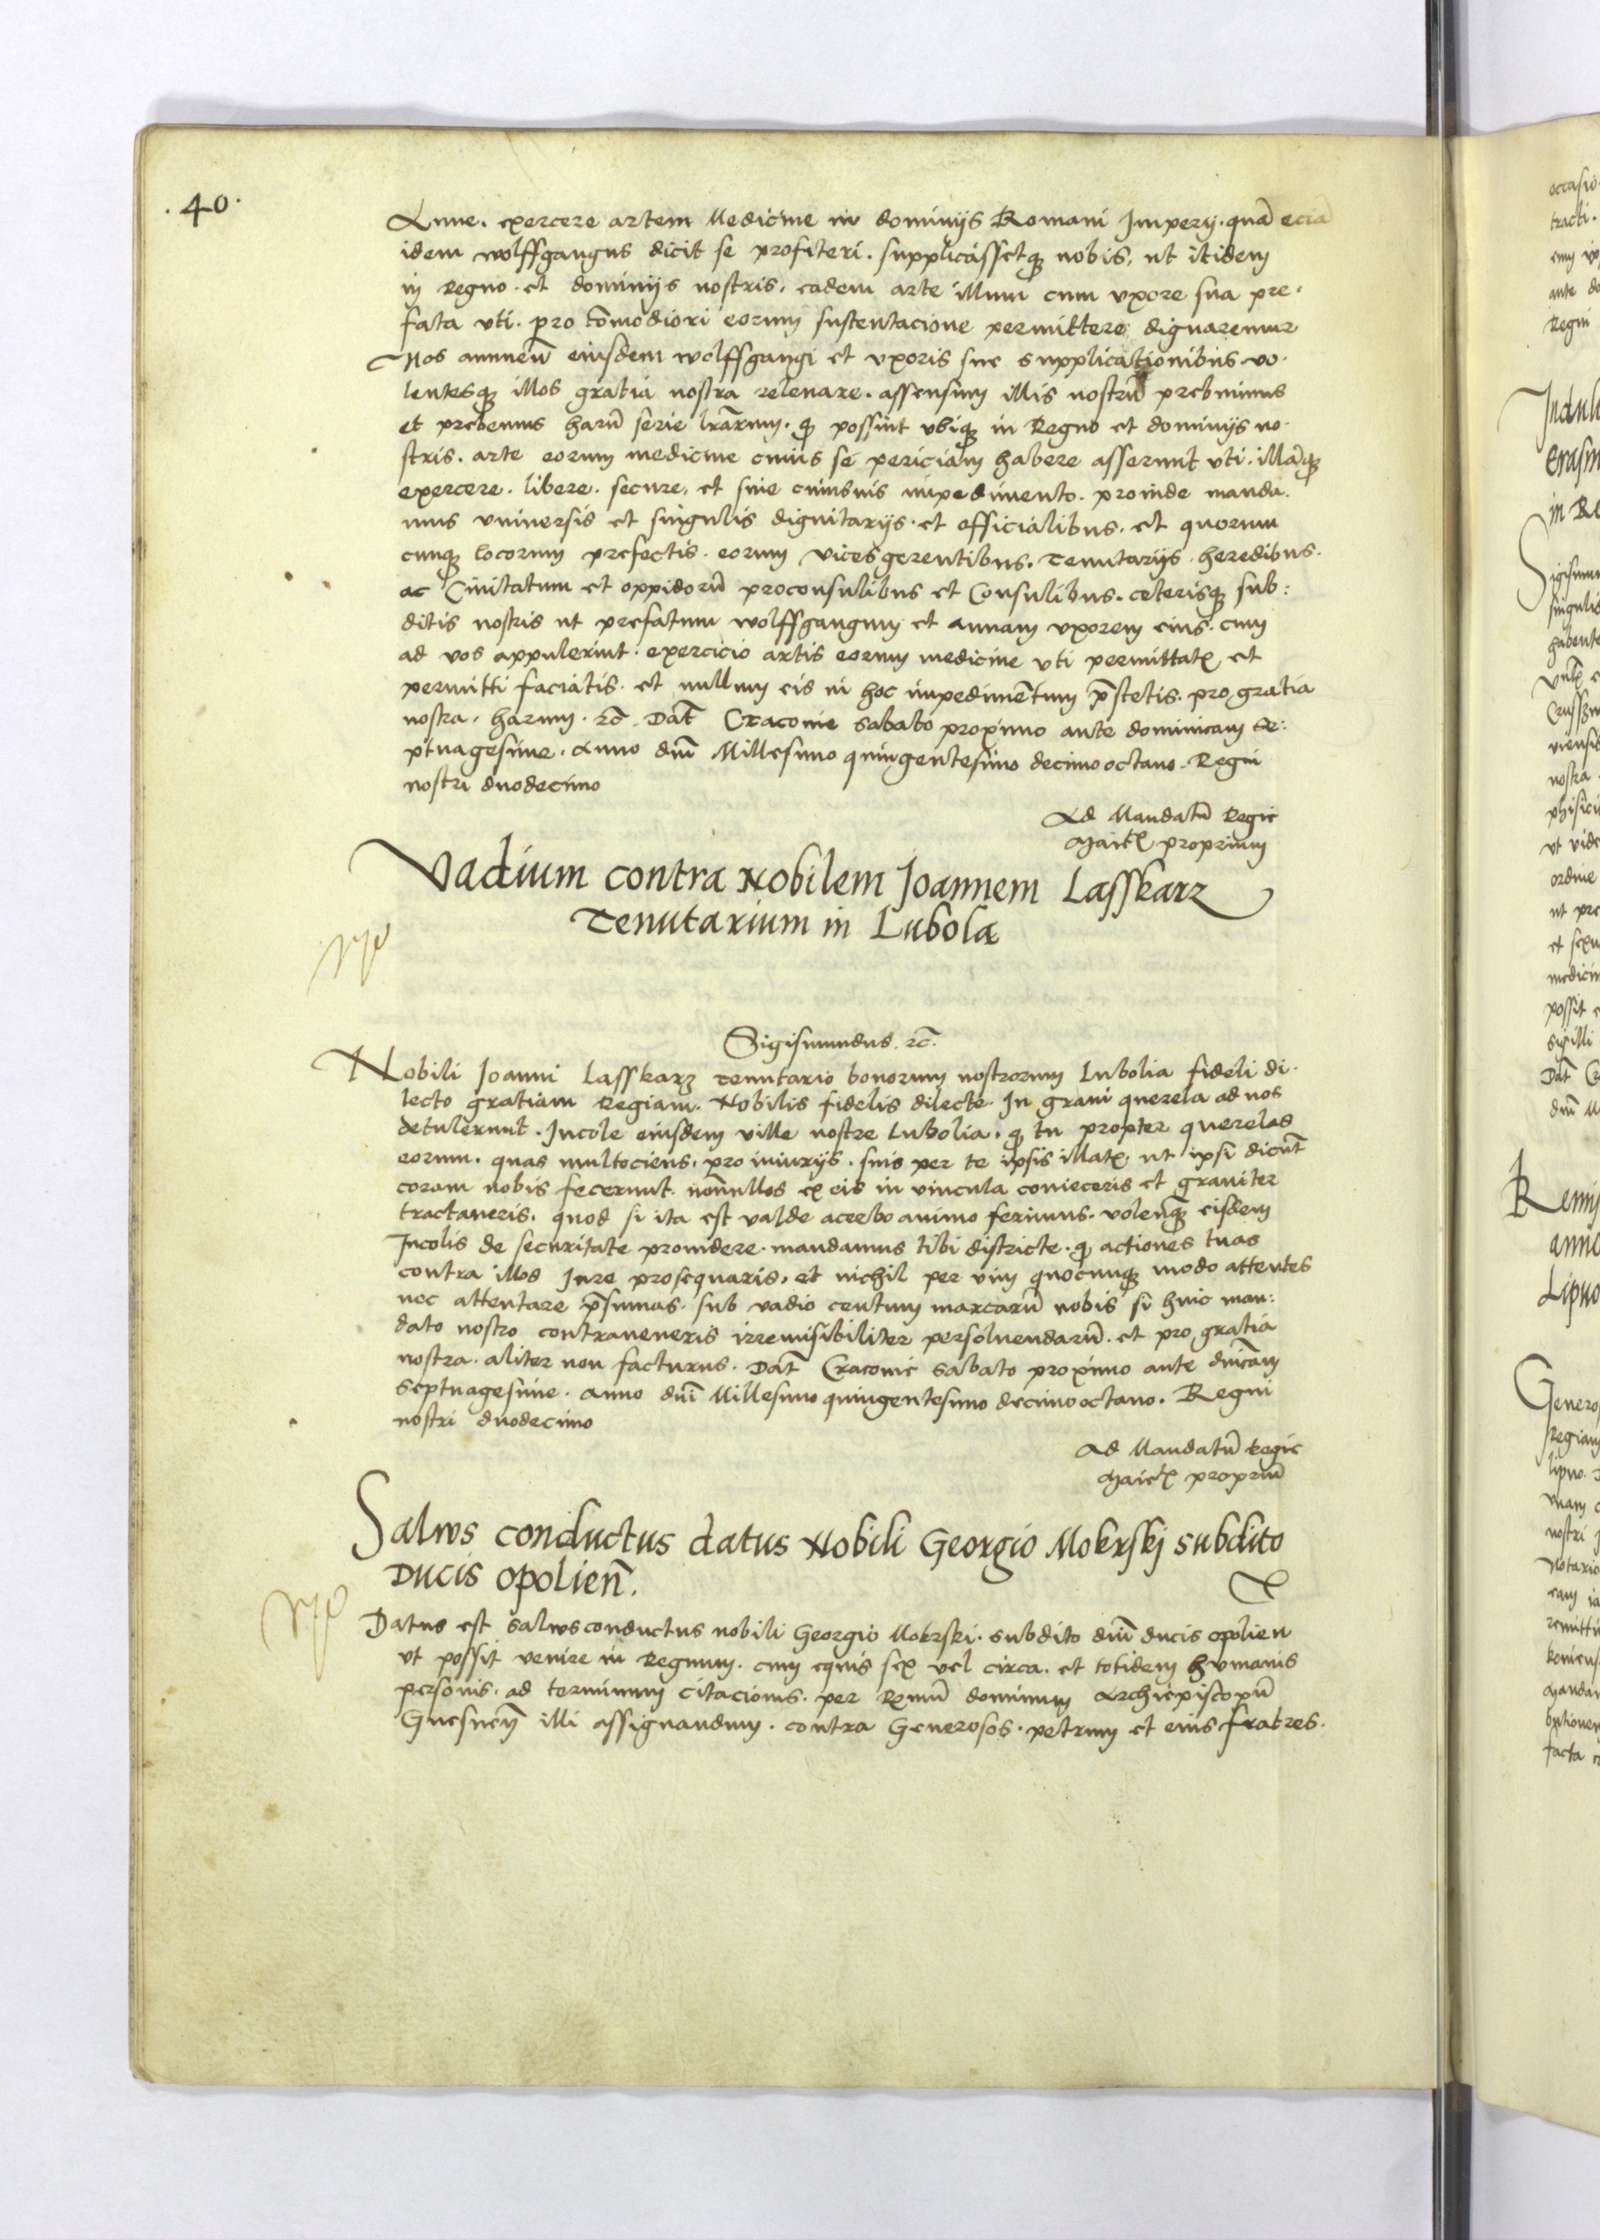 .40.
Anne. exercere artem Medicine in dominijs Romani Imperij. quā eciā
idem wolffgangus dicit se profiteri. supplicassetqȝ nobis, ut itidem
in Regno et dominijs nostris, eadem arte illum cum uxore sua pre-
fata uti. pro cōmodiori eorum sustentacione permittere dignaremur
Nos annuen̄ eiusdem wolffgangi et uxoris sue supplicationibus. vo-
lentesqȝ illos gratia nostra relevare. assensum illis nostrū prebuimus
et prebemus harū serie lrārum. qȝ possint ubiqȝ in Regno et dominijs no-
stris. arte eorum medicine cuius se periciam habere asserunt uti. illamqȝ
exercere. libere. secure, et sine cuiusvis impedimento. proinde manda-
mus universis et singulis dignitarijs. et officialibus. et quorum
cunqȝ locorum prefectis. eorum vicesgerentibus. Tenutarijs. heredibus.
ac Civitatum et oppidorū proconsulibus et Consulibus. ceterisqȝ sub:
ditis nostris ut prefatum wolffgangum et annam uxorem eius. cum
ad vos appulerint. exercicio artis eorum medicine uti permittatꝭ et
permitti faciatis. et nullum eis in hoc impedimētum p̄stetis. pro gratia
nostra. harum. ꝛc̄. Dat̄ Cracovie sabato proximo ante dominicam Se:
ptuagesime. Anno dn̄i Millesimo quingentesimo decimooctavo. Regni
nostri duodecimo
Ad Mandatū Regie
Maietꝭ proprium
Vadium contra Nobilem Joannem Lasskarz
Tenutarium in Lubola
Sigismundus ꝛc̄.
Nobili Joanni Lasskarz tenutario bonorum nostrorum Lubolia fideli di-
lecto gratiam Regiam. Nobilis fidelis dilecte. In gravi querela ad nos
detulerunt. Incole eiusdem ville nostre Lubolia. qȝ tu propter querelas
eorum. quas multociens. pro iniurijs. suis per te ipsis illatꝭ. ut ipsi dicūt
coram nobis fecerunt. nōnullos ex eis in vincula conieceris et graviter
tractaveris. quod si ita est valde acerbo animo ferimus. volen̄qȝ eisdem
Incolis de securitate providere. mandamus tibi districte. qȝ actiones tuas
contra illos Jure prosequaris, et nichil per vim quocunqȝ modo attentes
nec attentare p̄sumas. sub vadio centum marcarū nobis si huic man:
dato nostro contraveneris irremisibiliter persolvendarū. et pro gratia
nostra. aliter non facturus. Dat̄ Cracovie sabato proximo ante dn̄icam
Septuagesime. anno dn̄i Millesimo quingentesimo decimooctavo. Regni
nostri duodecimo
Ad Mandatū Regie
Maietꝭ propriū
Salvus conductus datus Nobili Georgio Mokrskj subdito
Ducis Opolien̄.
Datus est salvusconductus nobili Georgio Mokrski. subdito dn̄i ducis opolien
ut possit venire in Regnum. cum equis sex vel circa. et totidem humanis
personis. ad terminum citacionis. per Rmūm dominum Archiepiscopū
Gnesnen̄ illi assignandum. contra Generosos. petrum et eius fratres.